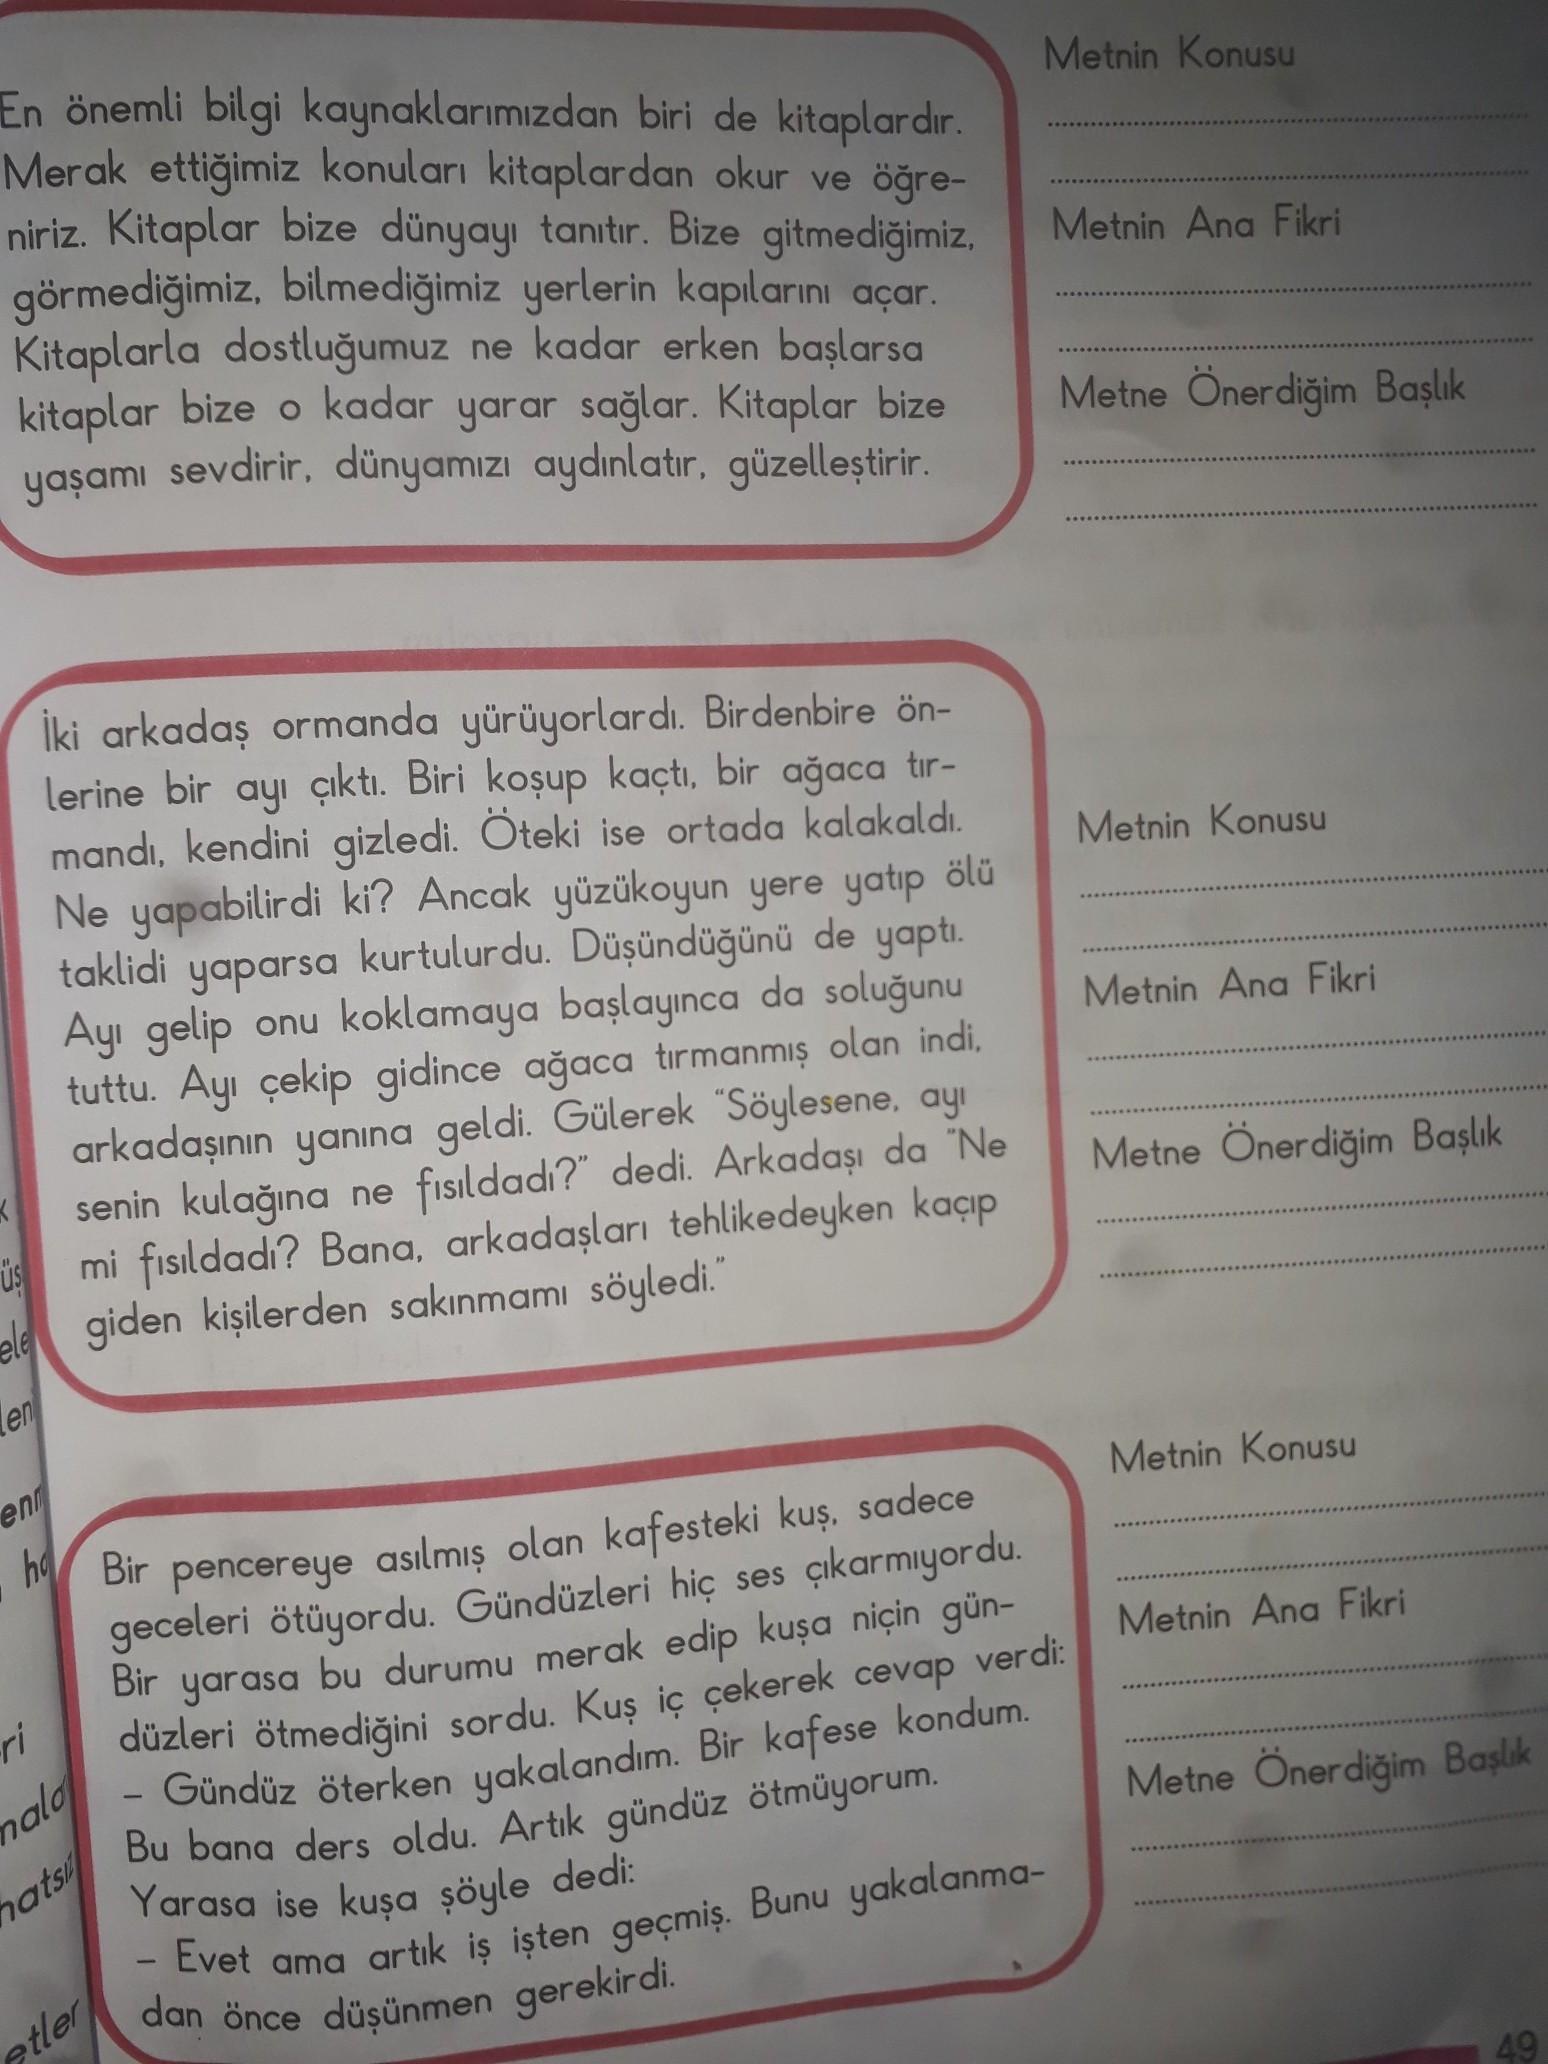 En önemli bilgi kaynaklarımızdan biri de kitaplardır.
Merak ettiğimiz konuları kitaplardan okur ve öğre-
niriz. Kitaplar bize dünyayı tanıtır. Bize gitmediğimiz,
görmediğimiz, bilmediğimiz yerlerin kapılarını açar.
Kitaplarla dostluğumuz ne kadar erken başlarsa
kitaplar bize o kadar yarar sağlar. Kitaplar bize
yaşamı sevdirir, dünyamızı aydınlatır, güzelleştirir.
Metnin Konusu
Metnin Ana Fikri
Metne Önerdiğim Başlık
İki arkadaş ormanda yürüyorlardı. Birdenbire ön-
lerine bir ayı çıktı. Biri koşup kaçtı, bir ağaca tır-
mandı, kendini gizledi. Öteki ise ortada kalakaldı.
Ne yapabilirdi ki? Ancak yüzükoyun yere yatıp ölü
taklidi yaparsa kurtulurdu. Düşündüğünü de yaptı.
Ayı gelip onu koklamaya başlayınca da soluğunu
tuttu. Ayı çekip gidince ağaca tırmanmış olan indi,
arkadaşının yanına geldi. Gülerek “Söylesene, ayı
senin kulağına ne fısıldadı?” dedi. Arkadaşı da “Ne
mi fısıldadı? Bana, arkadaşları tehlikedeyken kaçıp
giden kişilerden sakınmamı söyledi.”
Metnin Konusu
Metnin Ana Fikri
Metne Önerdiğim Başlık
Bir pencereye asılmış olan kafesteki kuş, sadece
geceleri ötüyordu. Gündüzleri hiç ses çıkarmıyordu.
Bir yarasa bu durumu merak edip kuşa niçin gün-
düzleri ötmediğini sordu. Kuş iç çekerek cevap verdi:
– Gündüz öterken yakalandım. Bir kafese kondum.
Bu bana ders oldu. Artık gündüz ötmüyorum.
Yarasa ise kuşa şöyle dedi:
– Evet ama artık iş işten geçmiş. Bunu yakalanma-
dan önce düşünmen gerekirdi.
Metnin Konusu
Metnin Ana Fikri
Metne Önerdiğim Başlık
49